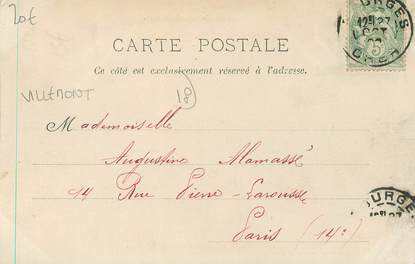 20€
CARTE POSTALE
Ce côté est exclusivement réservé à l'adresse.
VILLEMONT
18
Mademoiselle
Augustine Mamassé
14 Rue Pierre-Larousse
Paris (14e)
BOURGES
12H 27
OCT
CHER
5
BOURGES